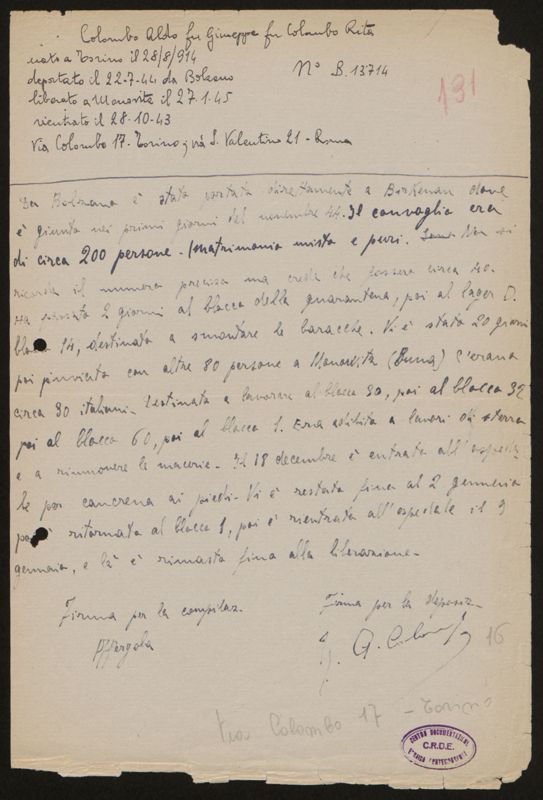 Colombo Aldo fu Giuseppe fu Colombo Rita
nato a Torino il 28/8/914
deportato il 22-7-44 da Bolzano
N° B. 13714
131
liberato a Monovitz il 27.1.45
rientrato il 28-10-43
Via Colombo 17 - Torino; via S. Valentino 21 - Roma
Da Bolzano è stato portato direttamente a Birkenau dove
è giunto nei primi giorni del novembre 44. Il convoglio era
di circa 200 persone - matrimonio misto e puri. Non si
ricorda il numero preciso ma crede che fossero circa
Ha passato 2 giorni al blocco della quarantena, poi al lager D.
blocco 14, destinato a smontare le baracche. Vi è stato 20 giorni
poi inviato con altre 80 persone a Monovitz (Buna) C'erano
circa 30 italiani. Destinato a lavorare al blocco 30, poi al blocco 32
poi al blocco 60, poi al blocco 1. Era adibito a lavori di sterro
e a rimuovere le macerie - Il 18 dicembre è entrato all'ospeda-
le per cancrena ai piedi - Vi è restato fino al 2 gennaio
poi è ritornato al blocco 1, poi è rientrato all'ospedale il 9
gennaio, e là è rimasto fino alla liberazione -
Firma per la compilaz.
Firma per la deposiz.
16
Via Colombo 17 - Torino
CENTRO DOCUMENTAZIONE
C.R.D.E.